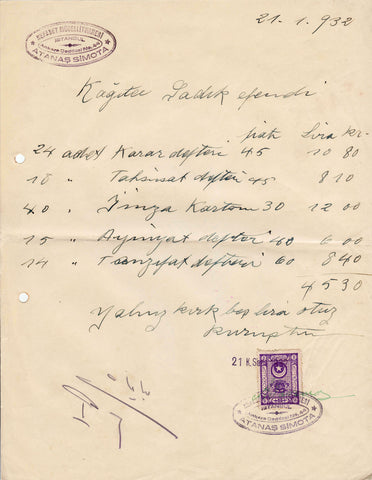 21.1.932
İSTANBUL
ATANAŞ SİMOTA
Kâğıtcı Sadık efendi
fiatı Lira Kr.
24 adet Karar defteri 45 10 80
18 " Tahsisat defteri 45 8 10
40 " İmza Kartonu 30 12 00
15 " Ayniyat defteri 40 6 00
14 " defteri 60 8 40
45 30
Yalnız kırk beş lira otuz
kuruştur
21 K.
İSTANBUL
ATANAŞ SİMOTA